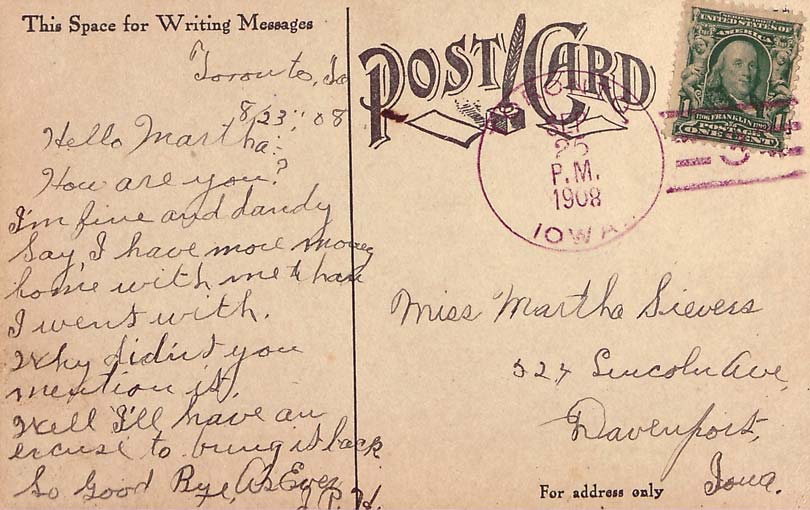 This Space for Writing Messages
Toronto, Ia
8/23, 08
Hello Martha:-
How are you?
I'm fine and dandy
Say, I have more money
home with me than
I went with.
Why didn't you
mention it.
Well I'll have an
excuse to bring it back
So Good Bye, As Ever
J. P. H.
POST CARD
P.M.
1908
IOWA
UNITED STATES OF
AMERICA
FRANKLIN
POSTAGE
1 ONE CENT 1
Miss Martha Sievers
527 Lincoln Ave,
Davenport,
Iowa.
For address only